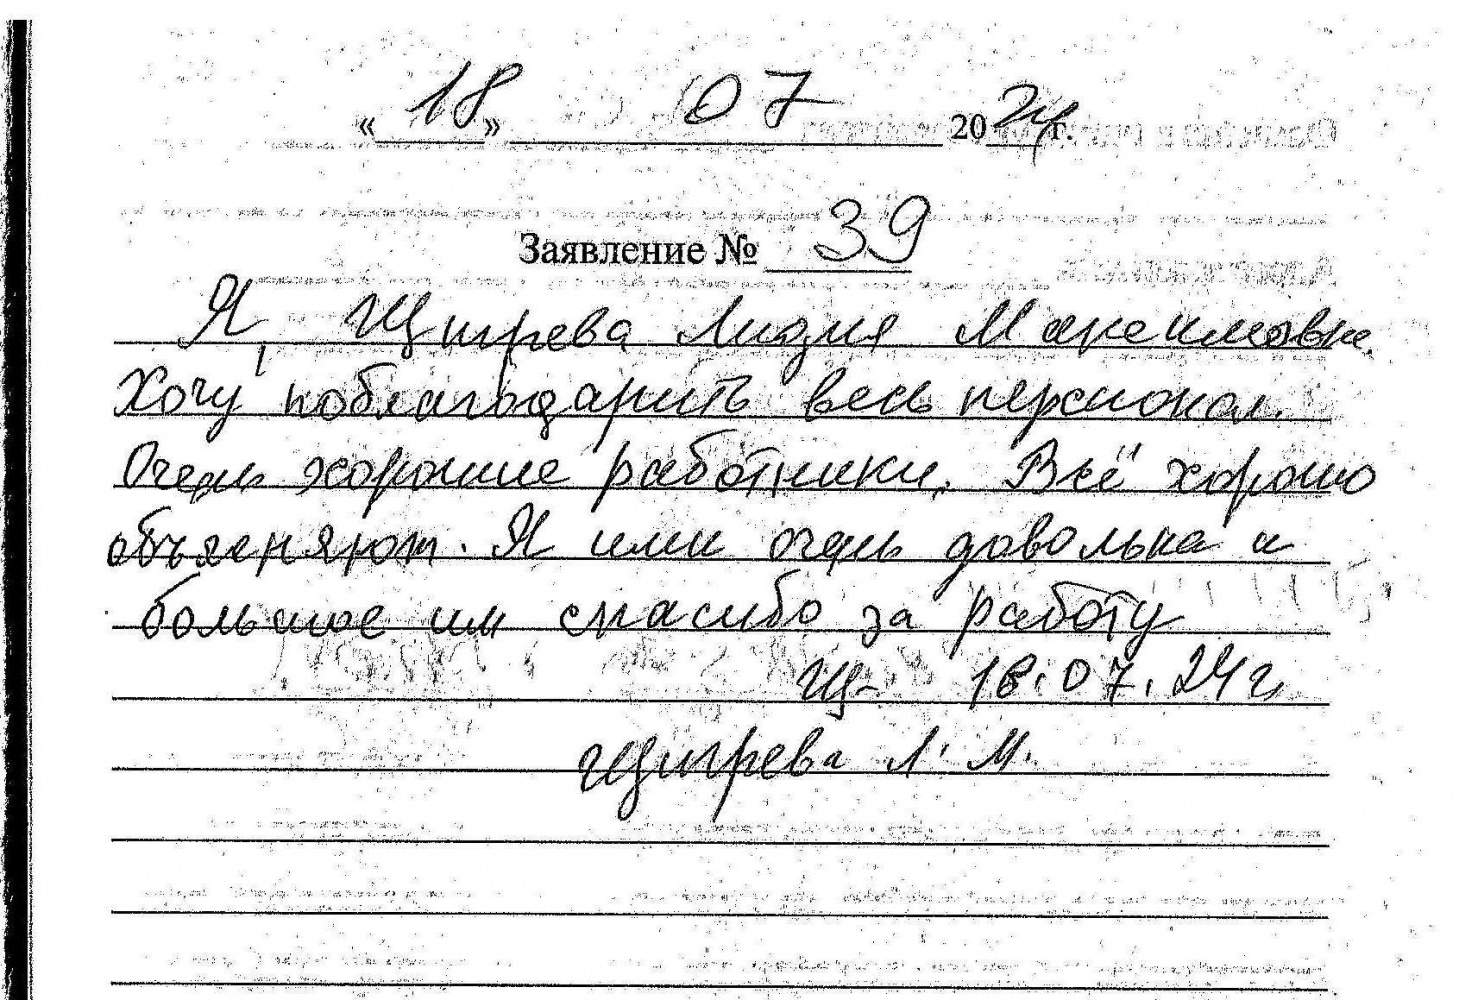 «18» 07 2024г.
Заявление № 39
Я, Щигрева Лидия Максимовна.
Хочу поблагодарить весь персионал.
Очень хорошие работники. Всё хорошо
объгеняют. Я ими очень довольна и
большое им спасибо за работу
Щ- 18.07.24г
Щигрева Л. М.